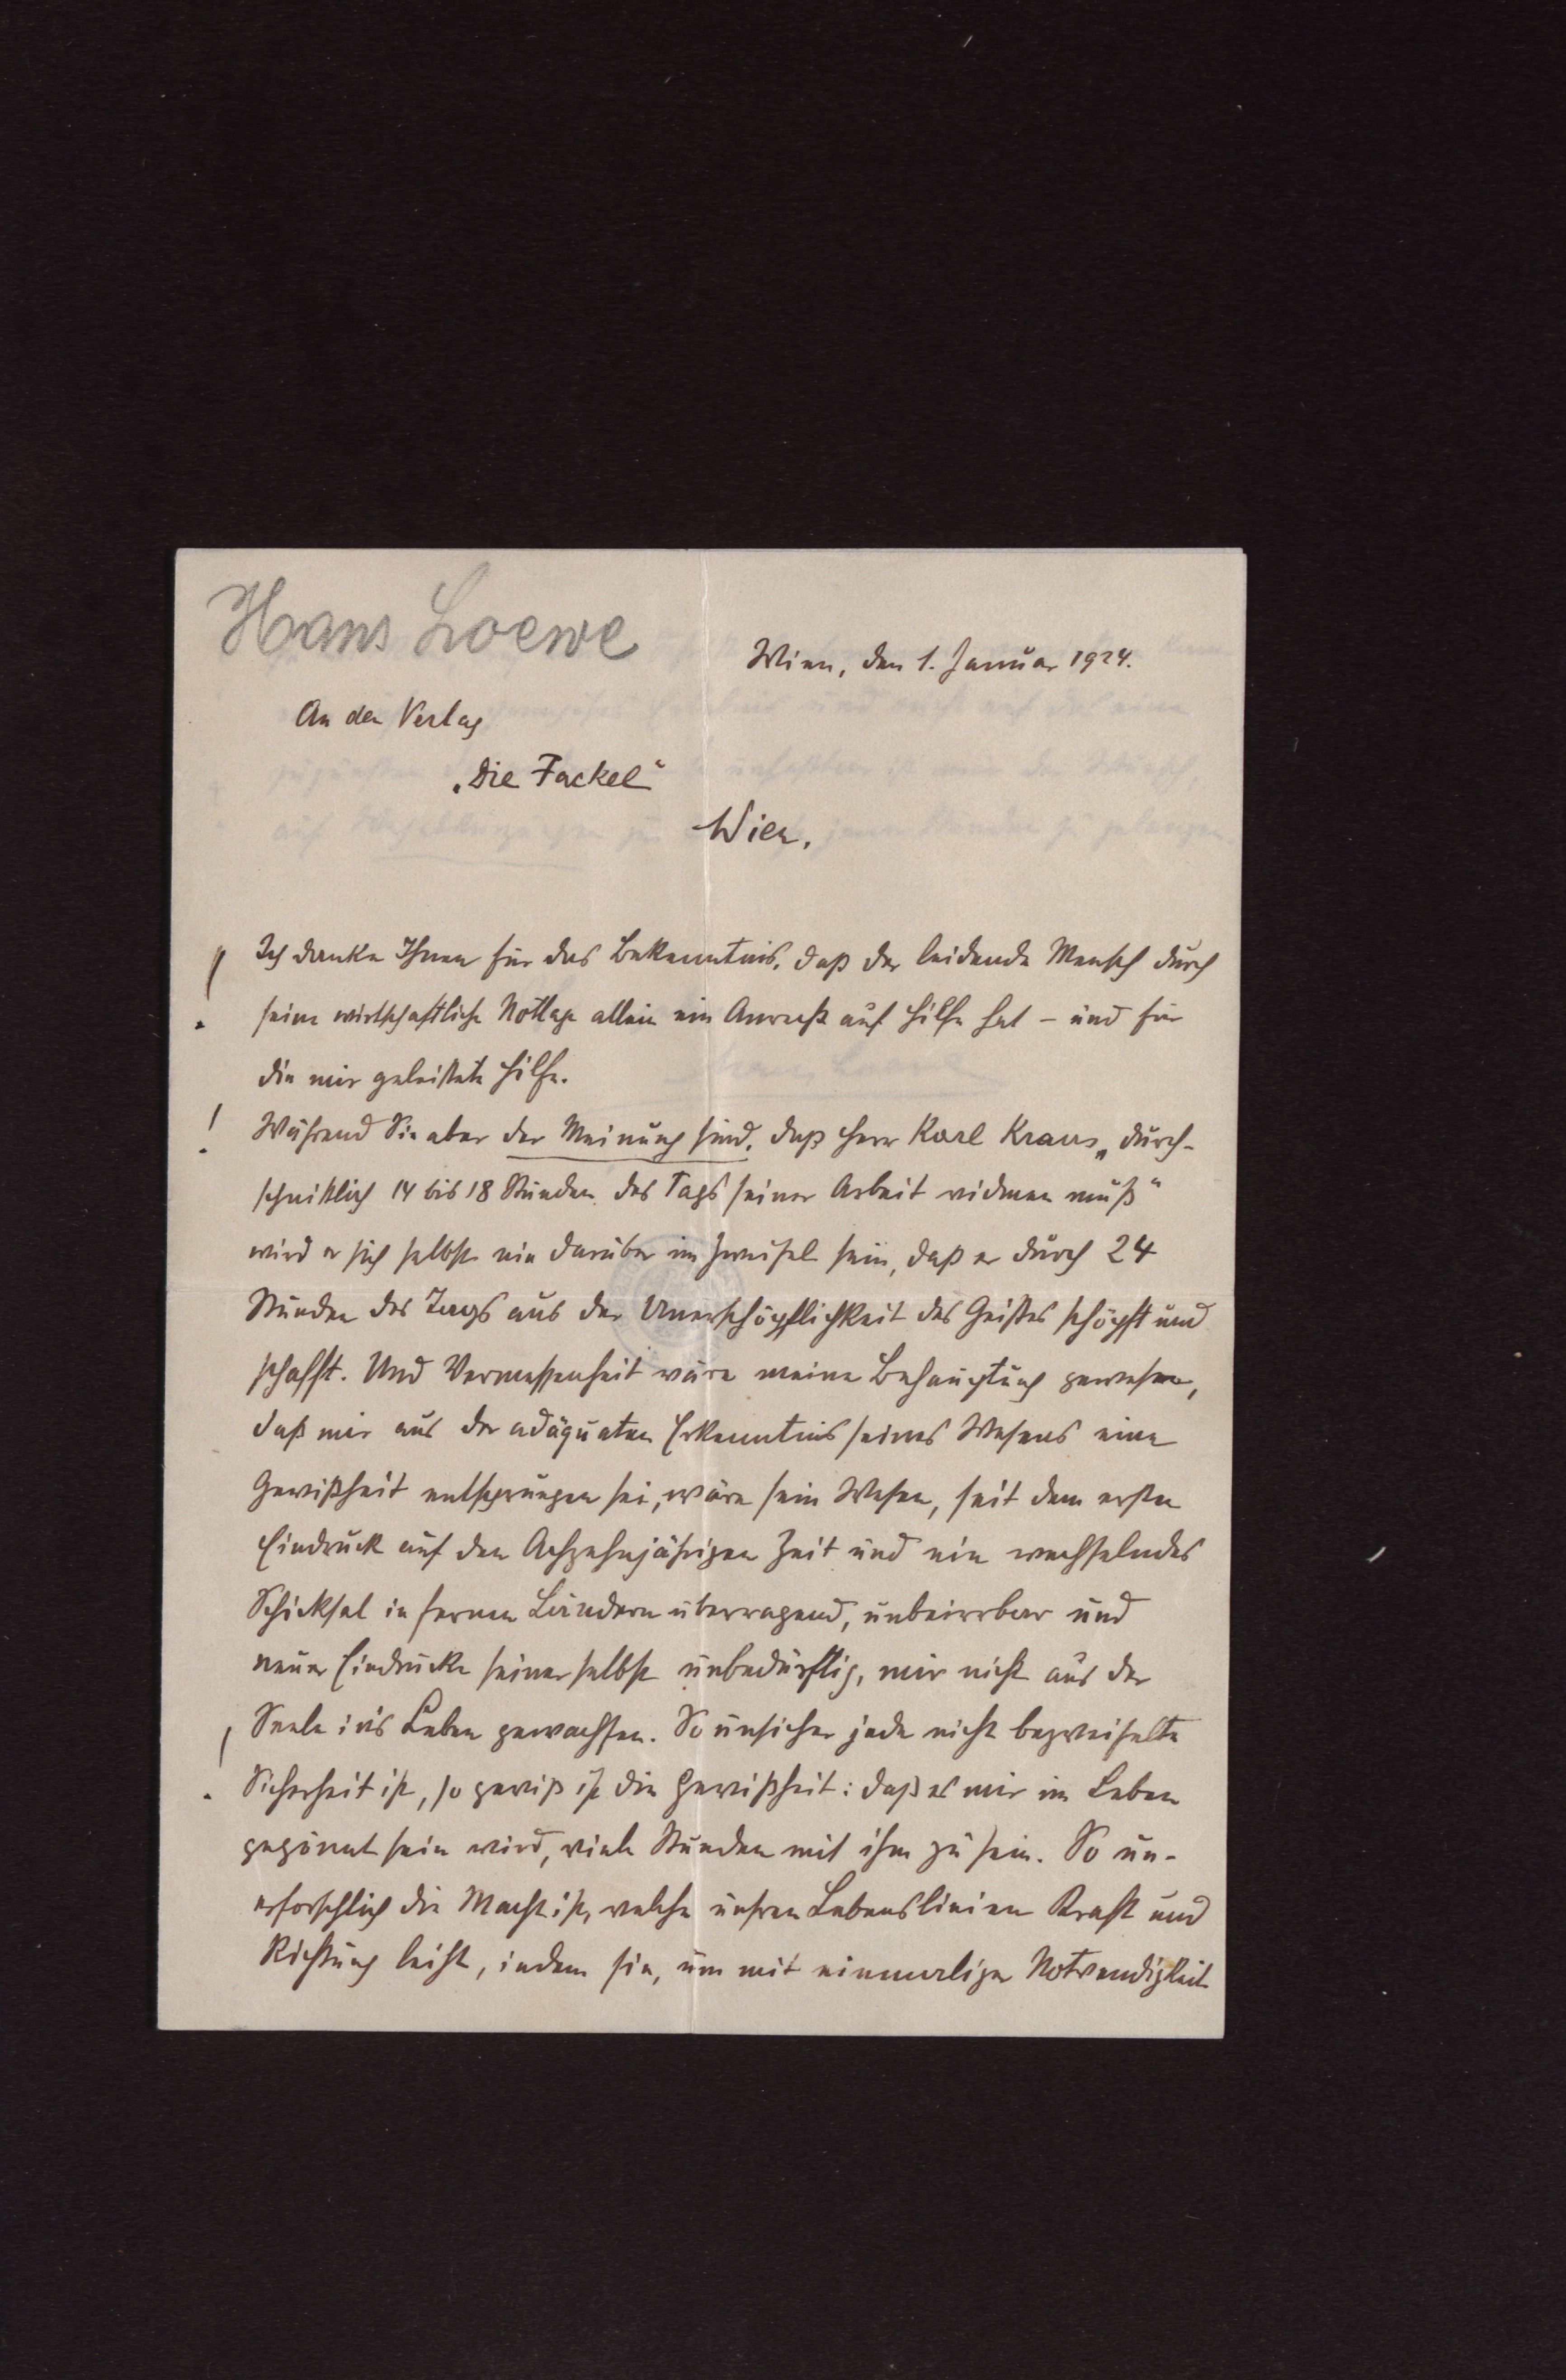 Hans Loewe
Wien, den 1. Januar 1924.
An den Verlag
„Die Fackel“
Wien.
! Ich danke Ihnen für das Bekenntnis, daß der leidende Mensch durch
seine wirtschaftliche Notlage allein ein Anrecht auf Hilfe hat – und für
die mir geleistete Hilfe.
! Während Sie aber der Meinung sind, daß Herr Karl Kraus „durch-
schnittlich 14 bis 18 Stunden des Tags seiner Arbeit widmen muß“
wird er sich selbst nie darüber im Zweifel sein, daß er durch 24
Stunden des Tags aus der Unerschöpflichkeit des Geistes schöpft und
schafft. Und Vermessenheit wäre meine Behauptung gewesen,
daß mir aus der adäquaten Erkenntnis seines Wesens eine
Gewißheit entsprungen sei, wäre sein Wesen, seit dem ersten
Eindruck auf den Achzehnjährigen Zeit und ein wechselndes
Schicksal in fernen Ländern überragend, unbeirrbar und
neuer Eindrücke seiner selbst unbedürftig, mir nicht aus der
! Seele ins Leben gewachsen. So unsicher jede nicht bezweifelte
Sicherheit ist, so gewiß ist die Gewißheit: daß es mir im Leben
gegönnt sein wird, viele Stunden mit ihm zu sein. So un-
erforschlich die Macht ist, welche unsren Lebenslinien Kraft und
Richtung leiht, indem sie, um mit einmaliger Notwendigkeit